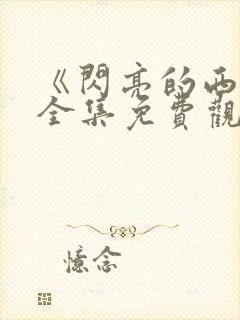 《閃亮的西
全集免費觀
憶念